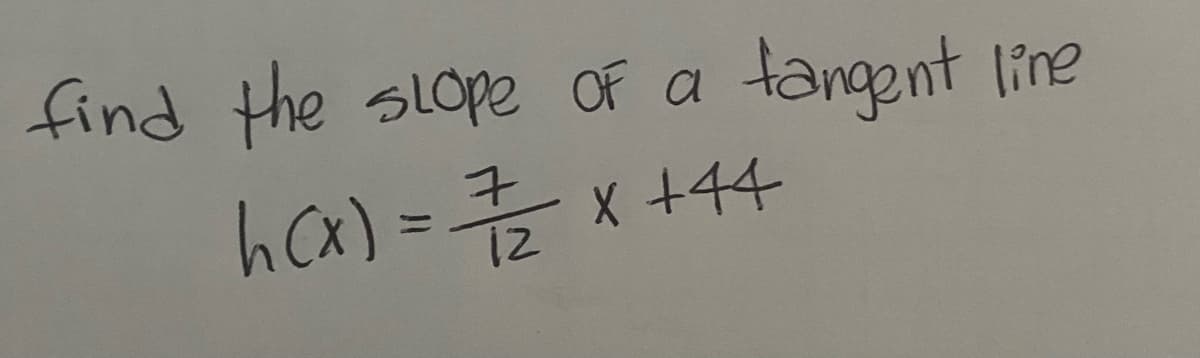 find the slope of a tangent line
h(x) = 7/12 x +44